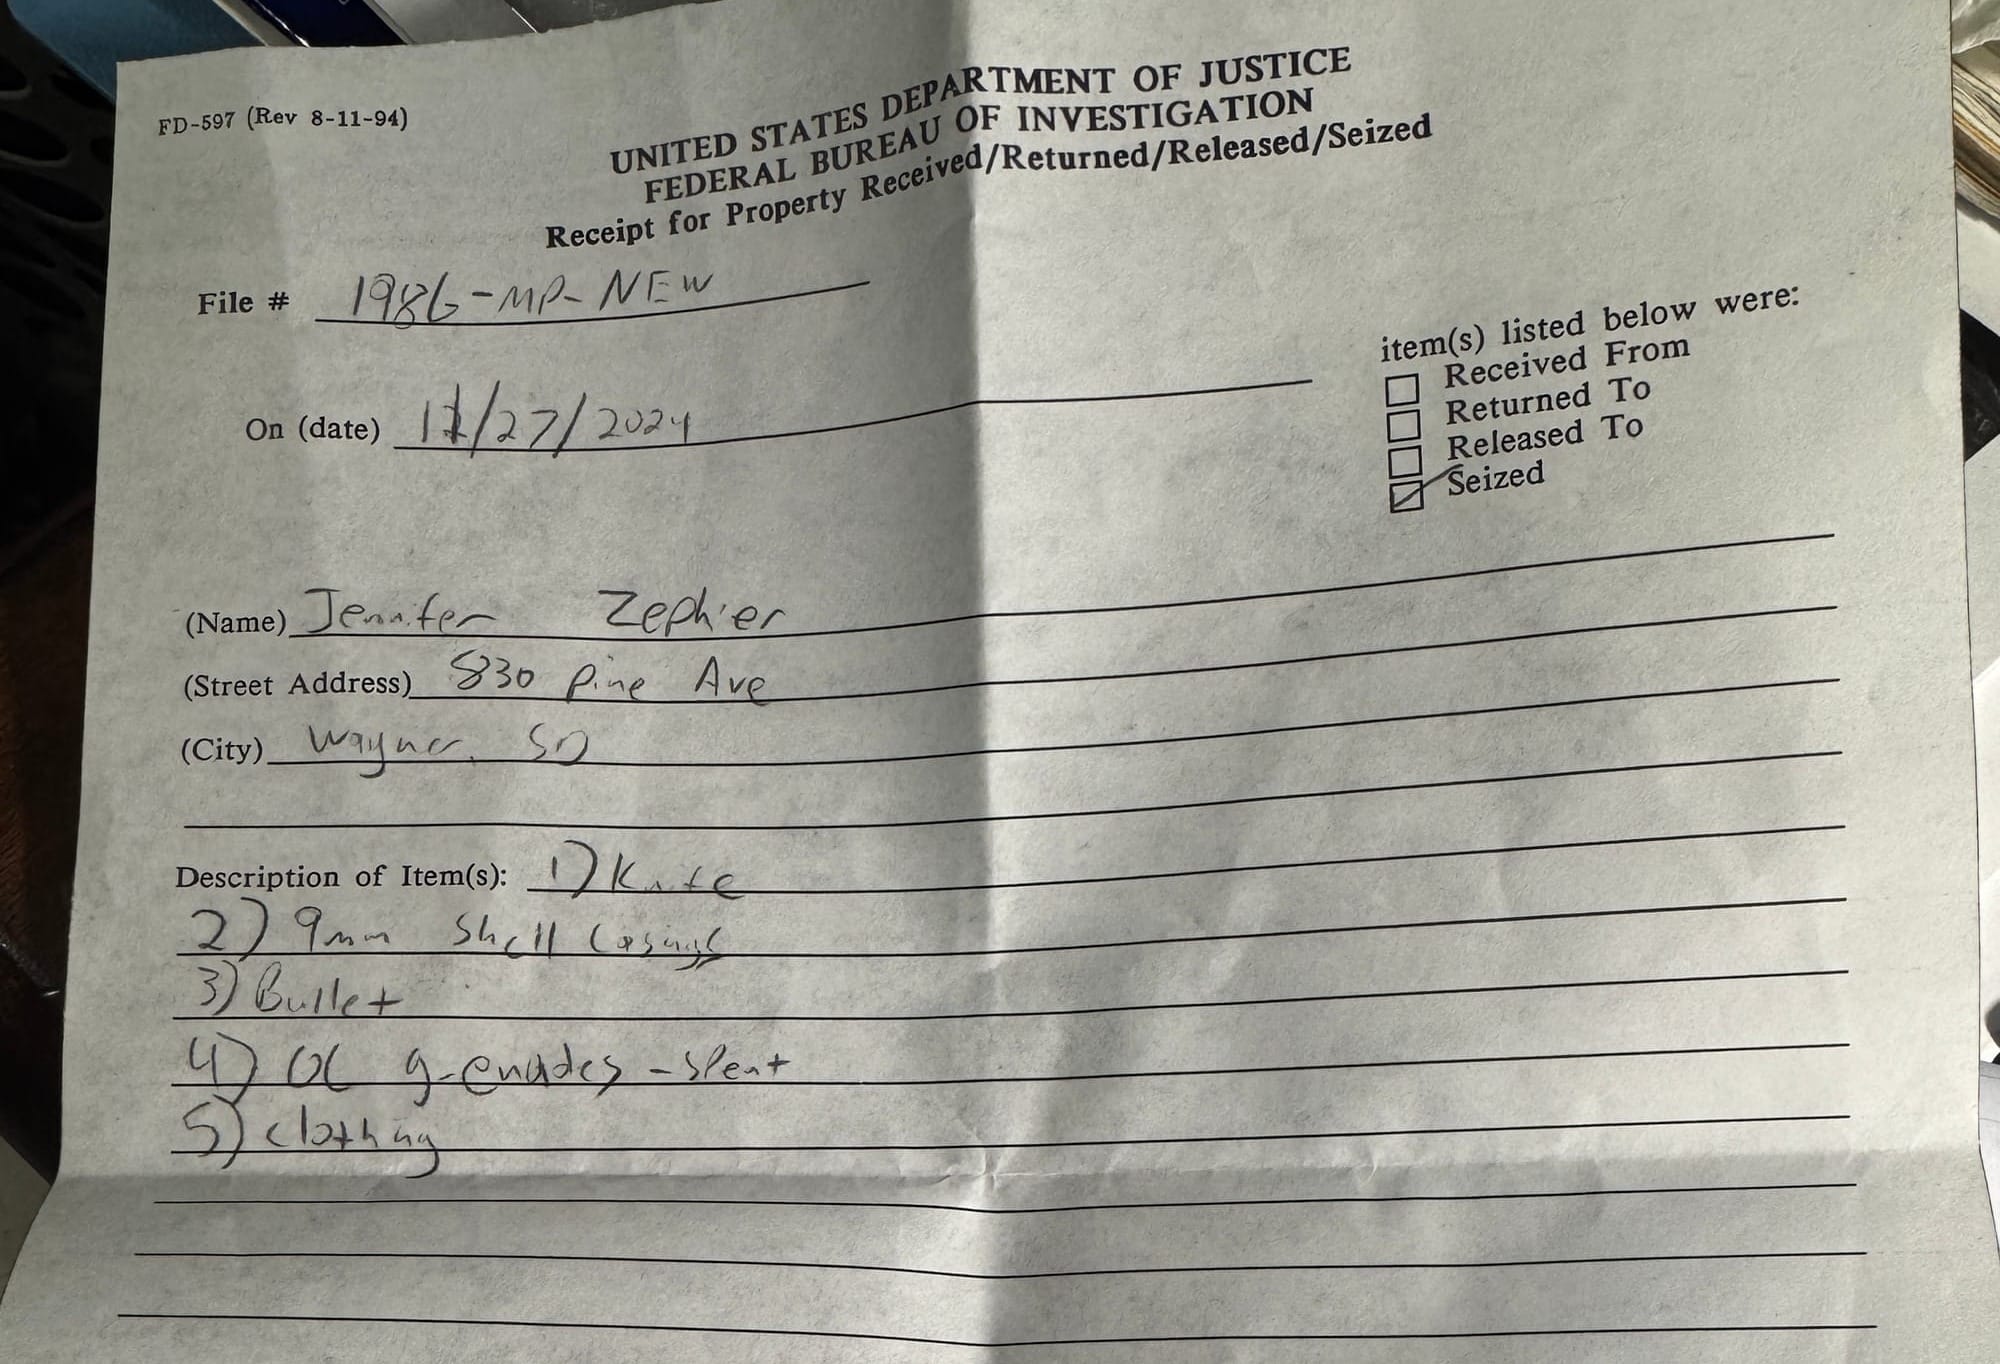 FD-597 (Rev 8-11-94)
UNITED STATES DEPARTMENT OF JUSTICE
FEDERAL BUREAU OF INVESTIGATION
Receipt for Property Received/Returned/Released/Seized
File # 198G-MP-NEW
On (date) 11/27/2024
item(s) listed below were:
Received From
Returned To
Released To
Seized
(Name) Jennifer Zephier
(Street Address) 830 Pine Ave
(City) Wagner, SD
Description of Item(s): 1) Knife
2) 9mm Shell Casings
3) Bullet
4) OC grenades - spent
5) clothing